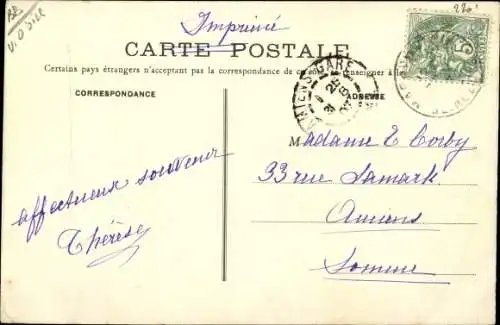 Imprimé
CARTE POSTALE
Certains pays étrangers n'acceptant pas la correspondance de ce se renseigner à la
CORRESPONDANCE
ADRESSE
AMIENS GARE
Madame E Corby
33 rue Lamark
Amiens
Somme
affectueux souvenir
Thérèse